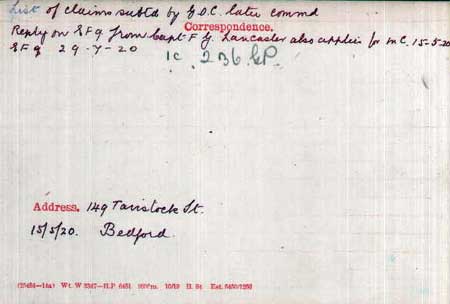 List of claims subtd by G.O.C. later commd
Correspondence.
Reply on EF9 from Capt F G. Lancaster also applies for M.C. 15-5-20
EF9 29-7-20
1c 236 GP.
Address. 149 Tavistock St.
15/5/20. Bedford.
(25484—14a) Wt. W 3347—H.P. 6451 10/19 H. St Est. 5450/1250